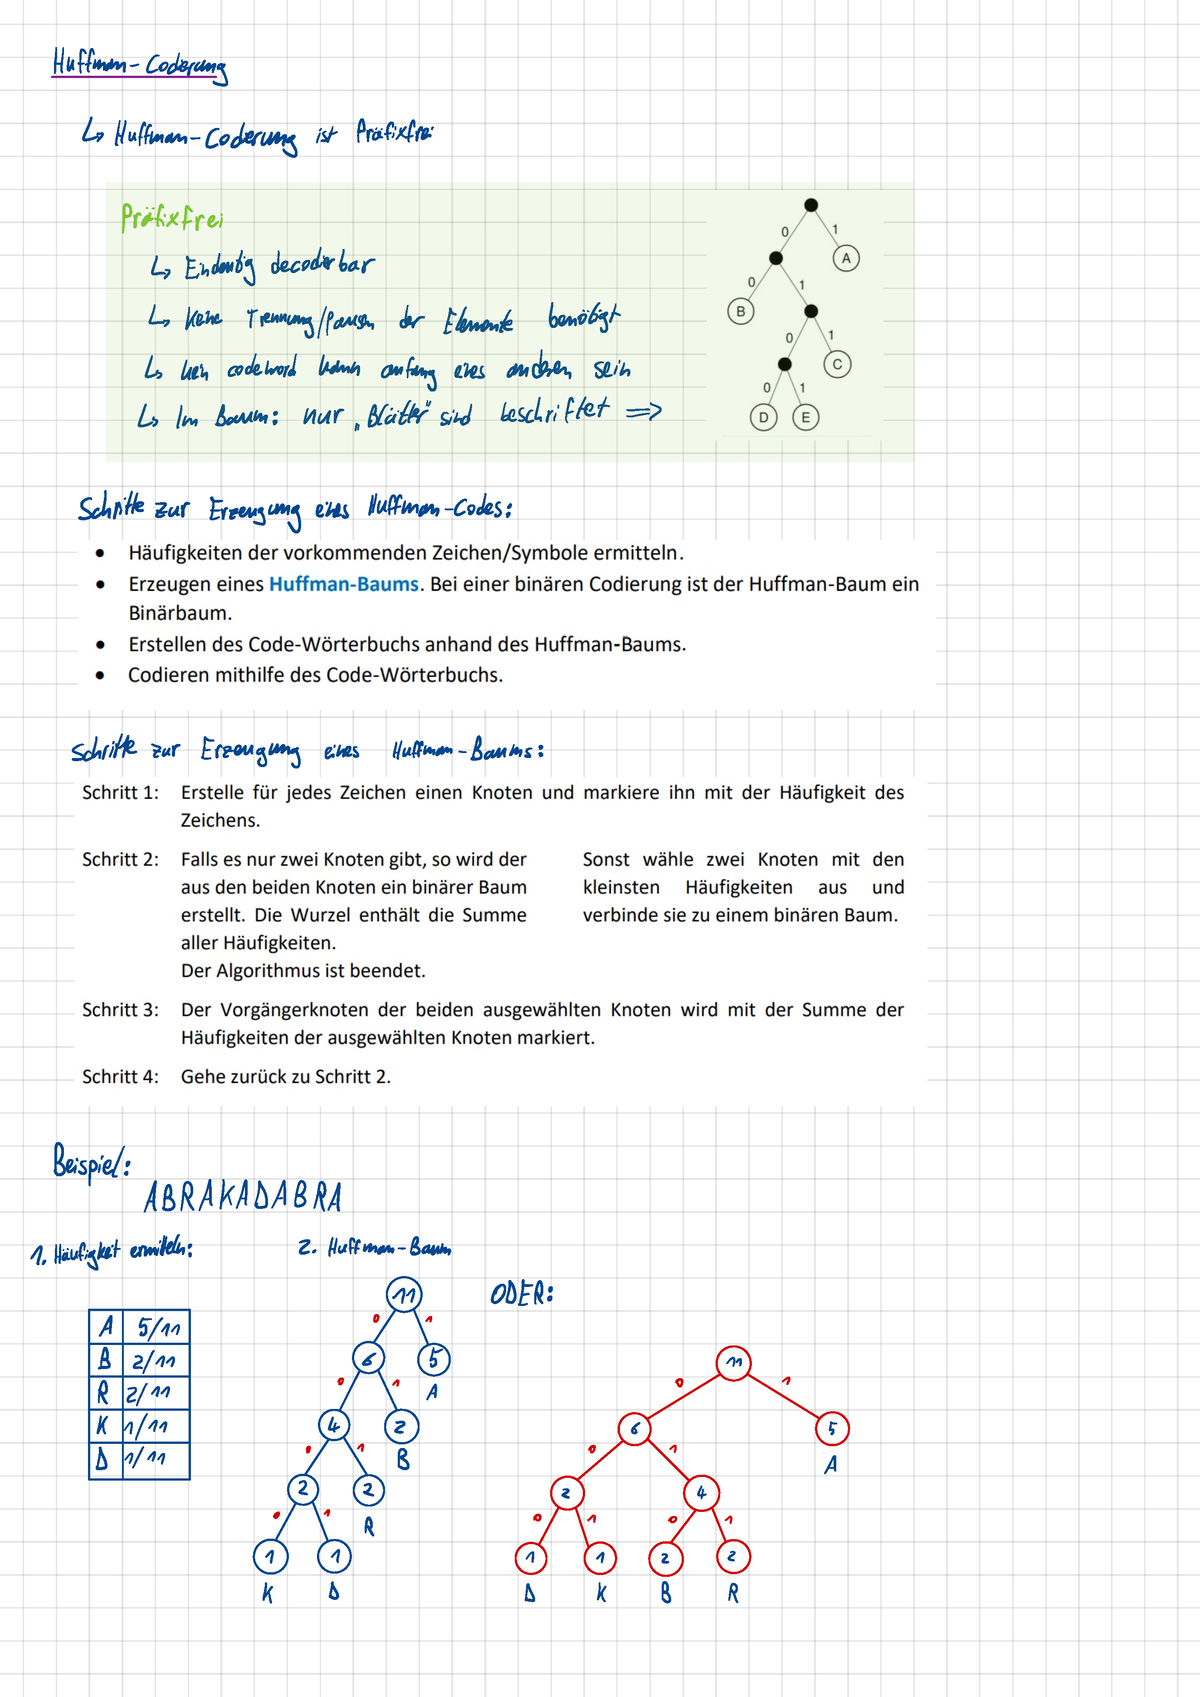 Huffman-Codierung
↳ Huffman-Codierung ist Präfixfrei
Präfixfrei
↳ Eindeutig decodierbar
↳ Keine Trennung/Pausen der Elemente benötigt
↳ kein codeword kann anfang eines anderen sein
↳ Im Baum: nur „Blätter" sind beschriftet ⇒
0 1
A
0 1
B
0 1
C
0 1
D E
Schritte zur Erzeugung eines Huffman-Codes:
• Häufigkeiten der vorkommenden Zeichen/Symbole ermitteln.
• Erzeugen eines Huffman-Baums. Bei einer binären Codierung ist der Huffman-Baum ein
Binärbaum.
• Erstellen des Code-Wörterbuchs anhand des Huffman-Baums.
• Codieren mithilfe des Code-Wörterbuchs.
Schritte zur Erzeugung eines Huffman-Baums:
Schritt 1: Erstelle für jedes Zeichen einen Knoten und markiere ihn mit der Häufigkeit des
Zeichens.
Schritt 2: Falls es nur zwei Knoten gibt, so wird der
aus den beiden Knoten ein binärer Baum
erstellt. Die Wurzel enthält die Summe
aller Häufigkeiten.
Der Algorithmus ist beendet.
Sonst wähle zwei Knoten mit den
kleinsten Häufigkeiten aus und
verbinde sie zu einem binären Baum.
Schritt 3: Der Vorgängerknoten der beiden ausgewählten Knoten wird mit der Summe der
Häufigkeiten der ausgewählten Knoten markiert.
Schritt 4: Gehe zurück zu Schritt 2.
Beispiel:
ABRAKADABRA
1. Häufigkeit ermitteln:
A 5/11
B 2/11
R 2/11
K 1/11
D 1/11
2. Huffman-Baum
11
0 1
6 5
A
0 1
4 2
B
0 1
2 2
R
0 1
1 1
K D
ODER:
11
0 1
6 5
A
0 1
2 4
0 1 0 1
1 1 2 2
D K B R